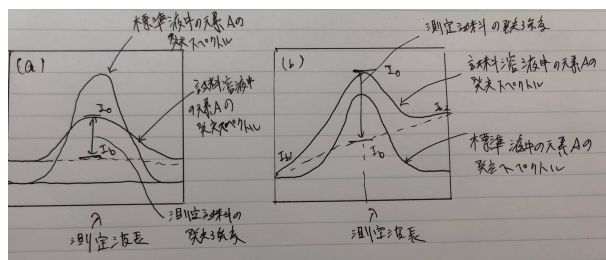 標準液中の元素Aの
発光スペクトル
(a)
I₀
試料溶液中
の元素Aの
発光スペクトル
I_b
測定試料の
発光強度
λ
測定波長
(b)
測定試料の発光強度
I₀
試料溶液中の元素Aの
発光スペクトル
I_b2
I_b1
I_b
標準液中の元素Aの
発光スペクトル
λ
測定波長